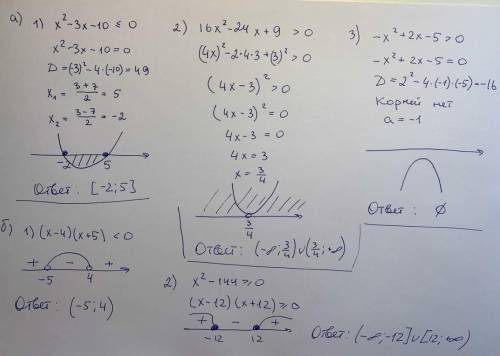 а) 1) x²-3x-10 ≤ 0
x²-3x-10=0
D=(-3)²-4·(-10)=49
x₁ = (3+7)/2 = 5
x₂ = (3-7)/2 = -2
-2 5
Ответ: [-2;5]
2) 16x²-24x+9 > 0
(4x)²-2·4·3+(3)² > 0
(4x-3)² > 0
(4x-3)² = 0
4x-3 = 0
4x = 3
x = 3/4
3/4
Ответ: (-∞; 3/4)∪(3/4; +∞)
3) -x²+2x-5 > 0
-x²+2x-5 = 0
D=2²-4·(-1)·(-5)=-16
Корней нет
a = -1
Ответ: ∅
б) 1) (x-4)(x+5) < 0
+ - +
-5 4
Ответ: (-5;4)
2) x²-144 ≥ 0
(x-12)(x+12) ≥ 0
+ - +
-12 12
Ответ: (-∞;-12]∪[12;+∞)